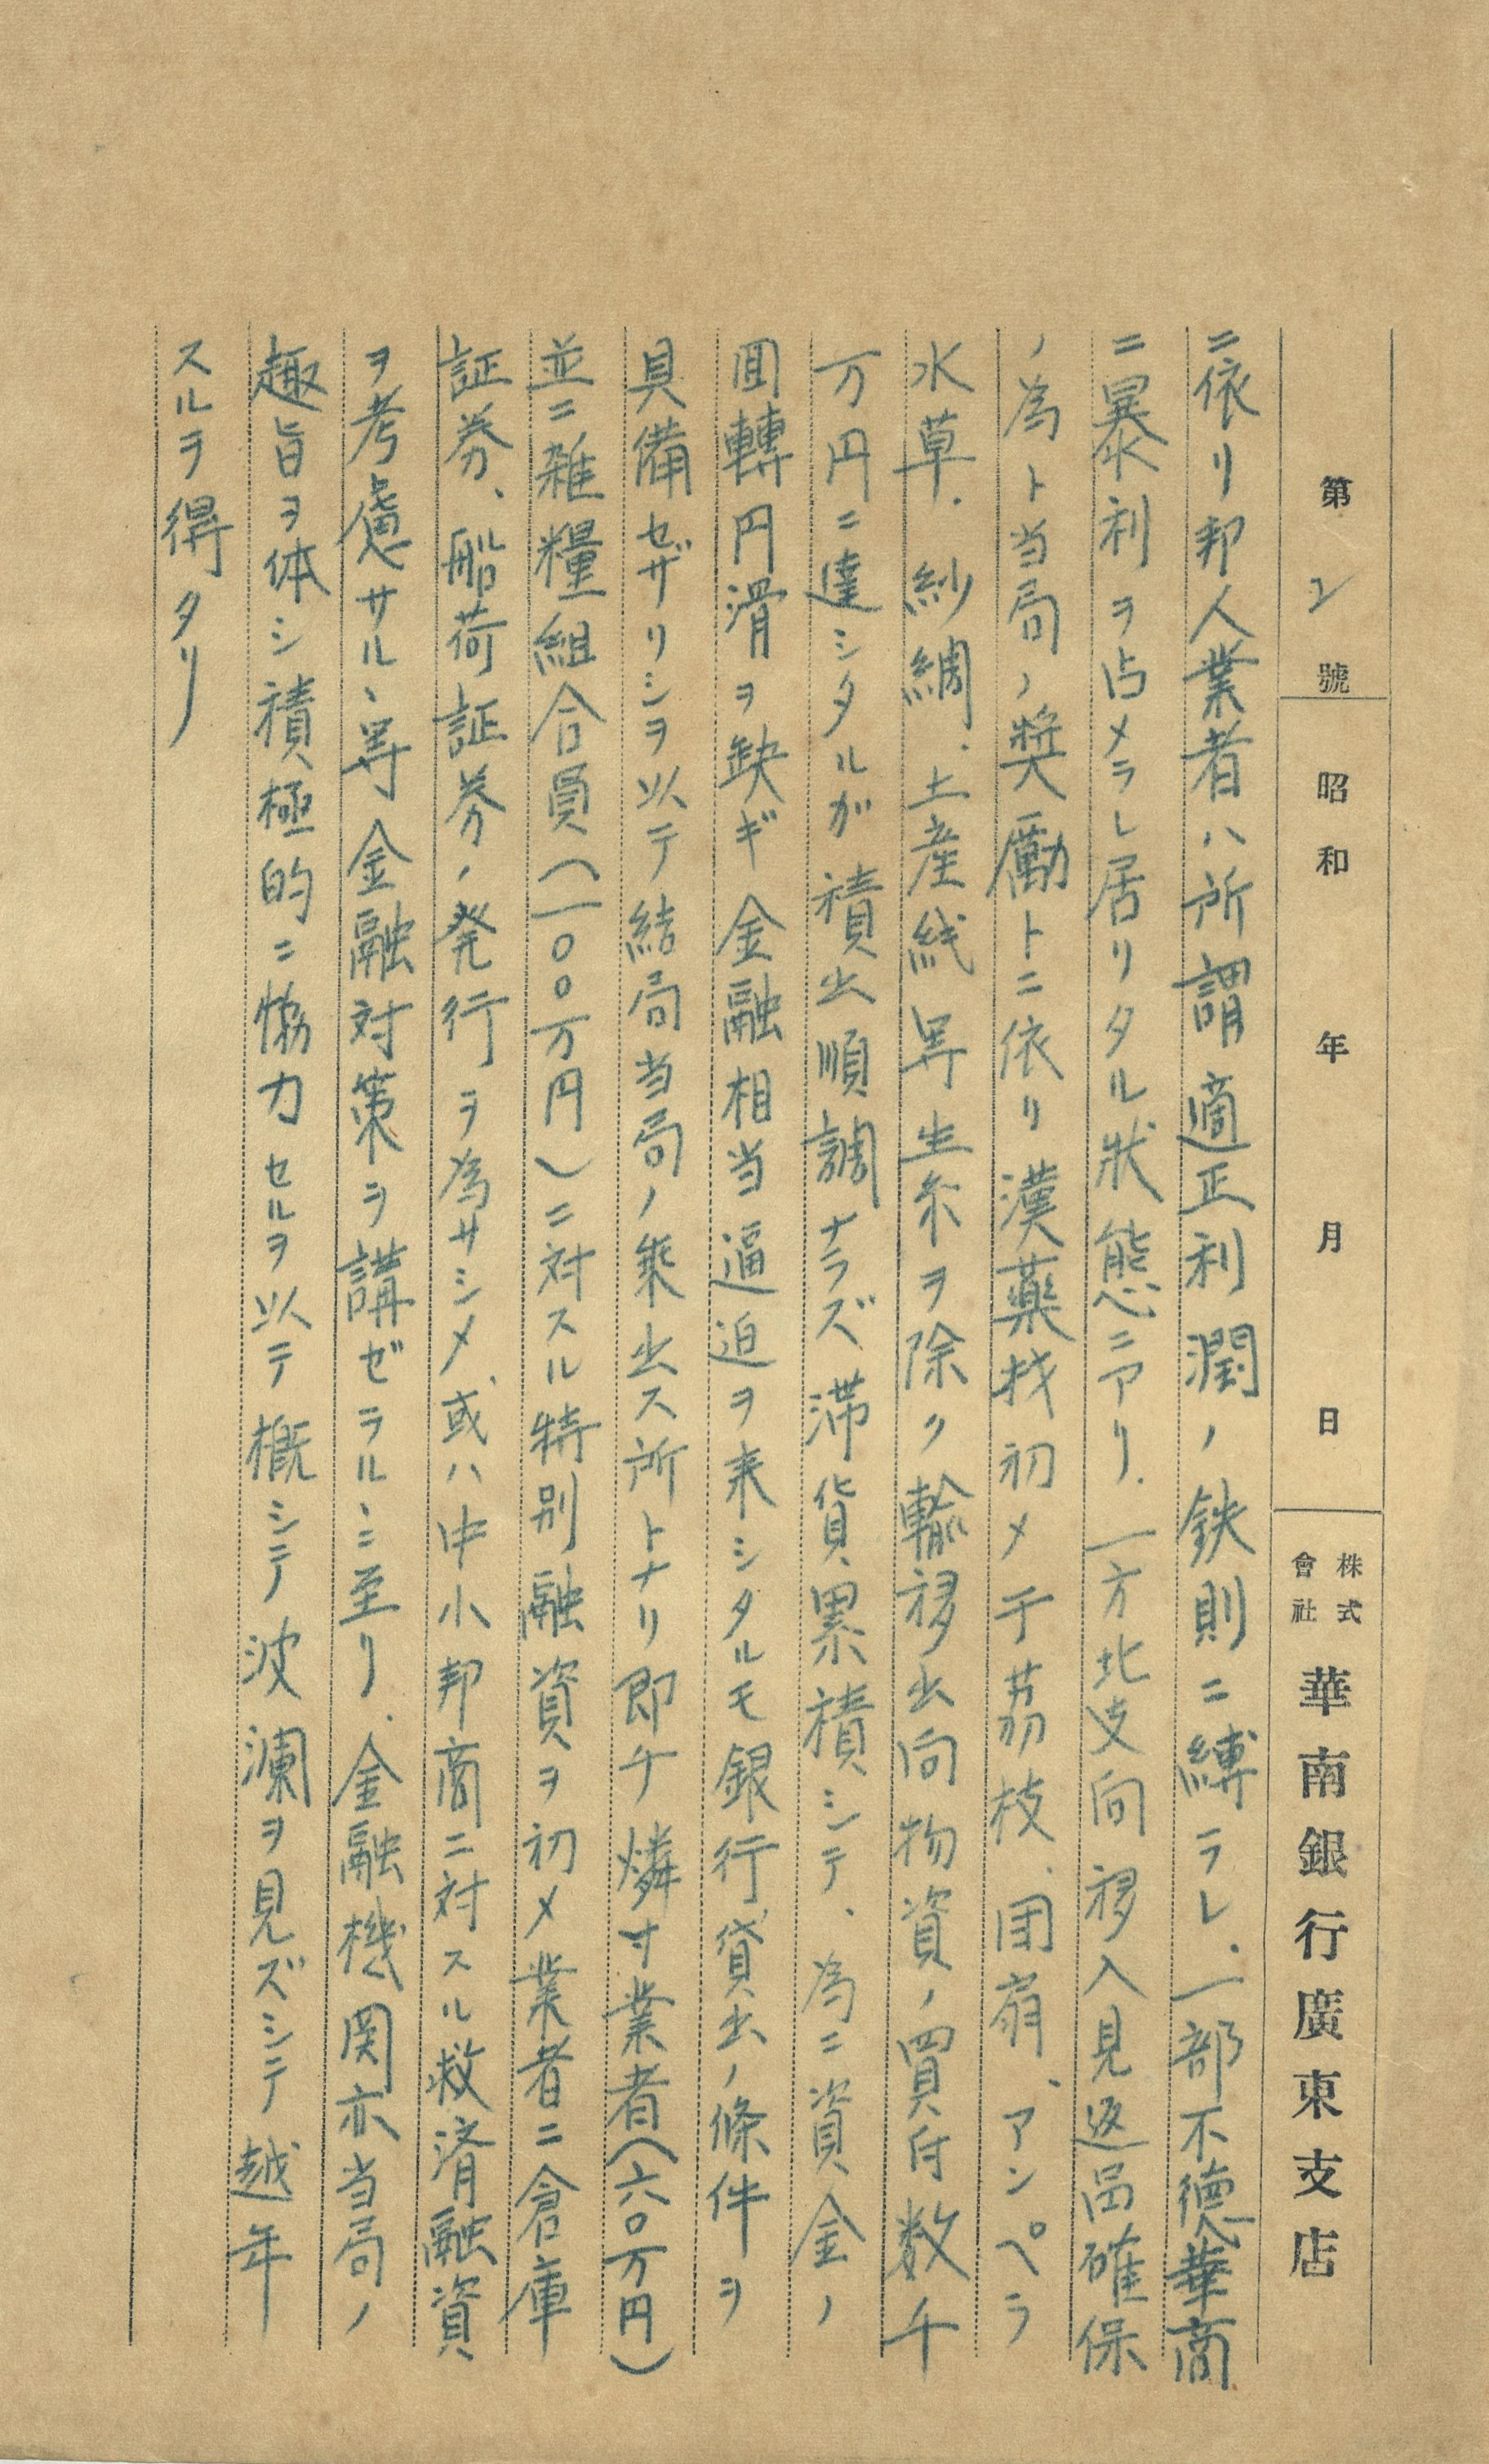 第 2 號 昭和 年 月 日 株式會社 華南銀行廣東支店
ニ依リ邦人業者ハ所謂適正利潤ノ鉄則ニ縛ラレ、一部不徳華商
ニ暴利ヲ占メラレ居リタル状態ニアリ、一方北支向移入見返品確保
ノ為ト当局ノ奨励トニ依リ漢薬材初メ干茘枝、団扇、アンペラ
水草、紗綢、土産絨等生糸ヲ除ク輸移出向物資ノ買付数千
万円ニ達シタルガ積出順調ナラズ滞貨累積シテ、為ニ資金ノ
回轉円滑ヲ缺ギ金融相当逼迫ヲ来シタルモ銀行貸出ノ條件ヲ
具備セザリシヲ以テ結局当局ノ乗出ス所トナリ即チ燐寸業者(六〇万円)
並ニ雑糧組合員(一〇〇万円)ニ対スル特別融資ヲ初メ業者ニ倉庫
証券、船荷証券ノ発行ヲ為サシメ、或ハ中小邦商ニ対スル救済融資
ヲ考慮サルヽ等金融対策ヲ講ゼラルヽニ至リ、金融機関亦当局ノ
趣旨ヲ体シ積極的ニ協力セルヲ以テ概シテ波瀾ヲ見ズシテ越年
スルヲ得タリ